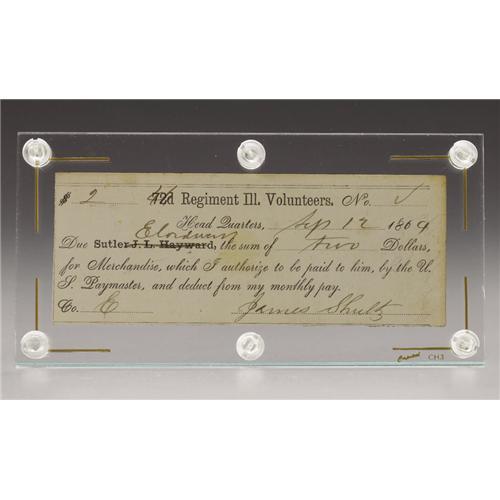 $ 2 72d Regiment Ill. Volunteers. No.
Head Quarters, Sep 12 1864
Due Sutler J. L. Hayward, the sum of two Dollars,
for Merchandise, which I authorize to be paid to him, by the U.
S. Paymaster, and deduct from my monthly pay.
Co. E James Shultz
CH3